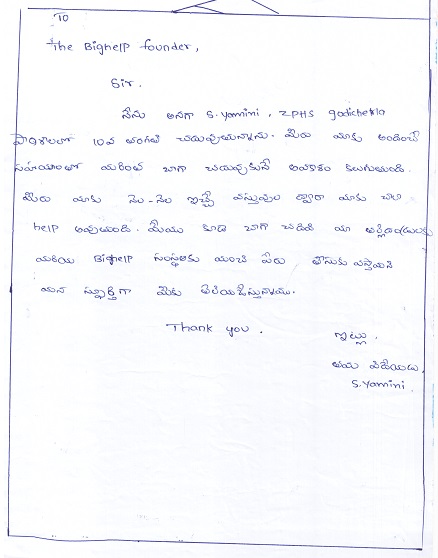 To
The Bighelp founder,
Sir.
నేను అనగా S. yamini, ZPHS godicherla
పాఠశాలలో 10వ తరగతి చదువుతున్నాను. మీరు మాకు అందించే
సహాయంతో మరింత బాగా చదువుకునే అవకాశం కలుగుతుంది.
మీరు మాకు నెల-నెల ఇచ్చే వస్తువుల ద్వారా మాకు చాల
help అవుతుంది. మేము కూడ బాగా చదివి మా తల్లిదండ్రులకు
మరియు Bighelp సంస్థలకు మంచి పేరు తీసుకు వస్తామని
మన స్ఫూర్తిగా మీకు తెలియజేస్తున్నాము.
Thank you.
ఇట్లు.
తమ విదేయురాలు
S. Yamini.